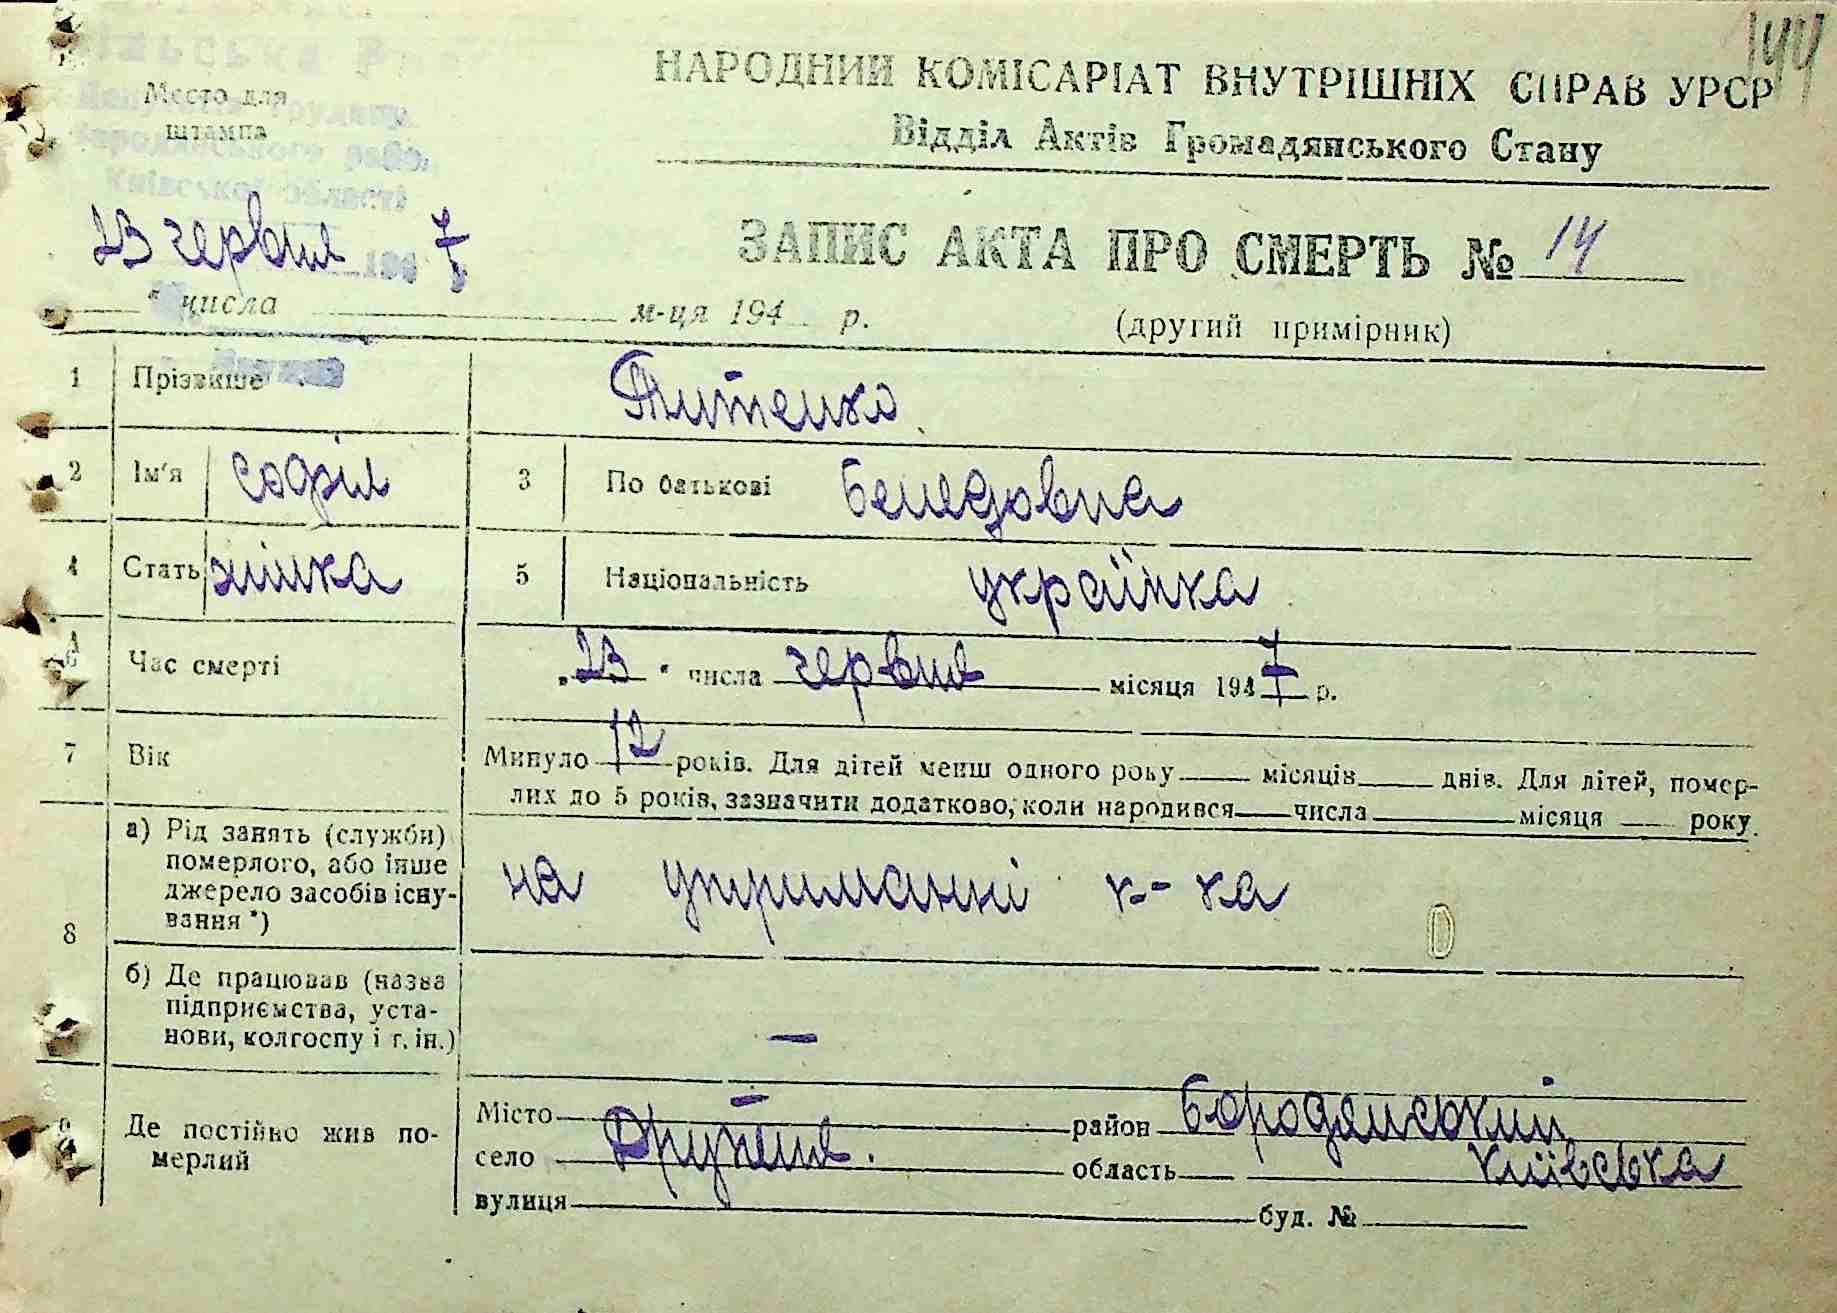 144
НАРОДНИЙ КОМІСАРІАТ ВНУТРІШНІХ СПРАВ УРСР
Відділ Актів Громадянського Стану
Место для
штампа
Київської області
23 червня 194 7
ЗАПИС АКТА ПРО СМЕРТЬ № 14
числа м-ця 194 р.
(другий примірник)
1 Прізвище Титенко
2 Ім'я Софія 3 По батькові
4 Стать жінка 5 Національність українка
6 Час смерті „23" числа червня місяця 1947 р.
7 Вік Минуло 12 років. Для дітей менш одного року місяців днів. Для дітей, помер-
лих до 5 років, зазначити додатково, коли народився числа місяця року.
8 а) Рід занять (служби)
померлого, або інше
джерело засобів існу-
вання *)
на утриманні к-ка
б) Де працював (назва
підприємства, уста-
нови, колгоспу і т. ін.)
—
9 Де постійно жив по-
мерлий
Місто — район Бородянський
село Дружня. область Київська
вулиця буд. №